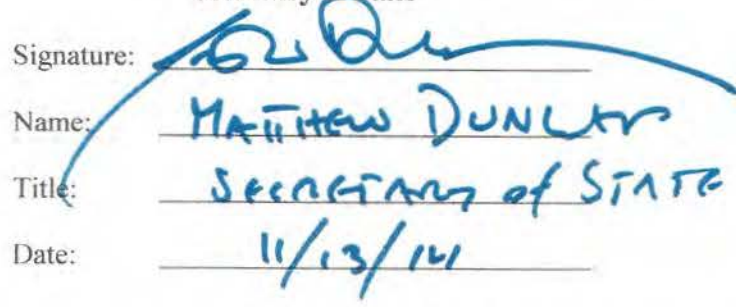 Signature:
Name: MATTHEW DUNLAP
Title: SECRETARY of STATE
Date: 11/13/14